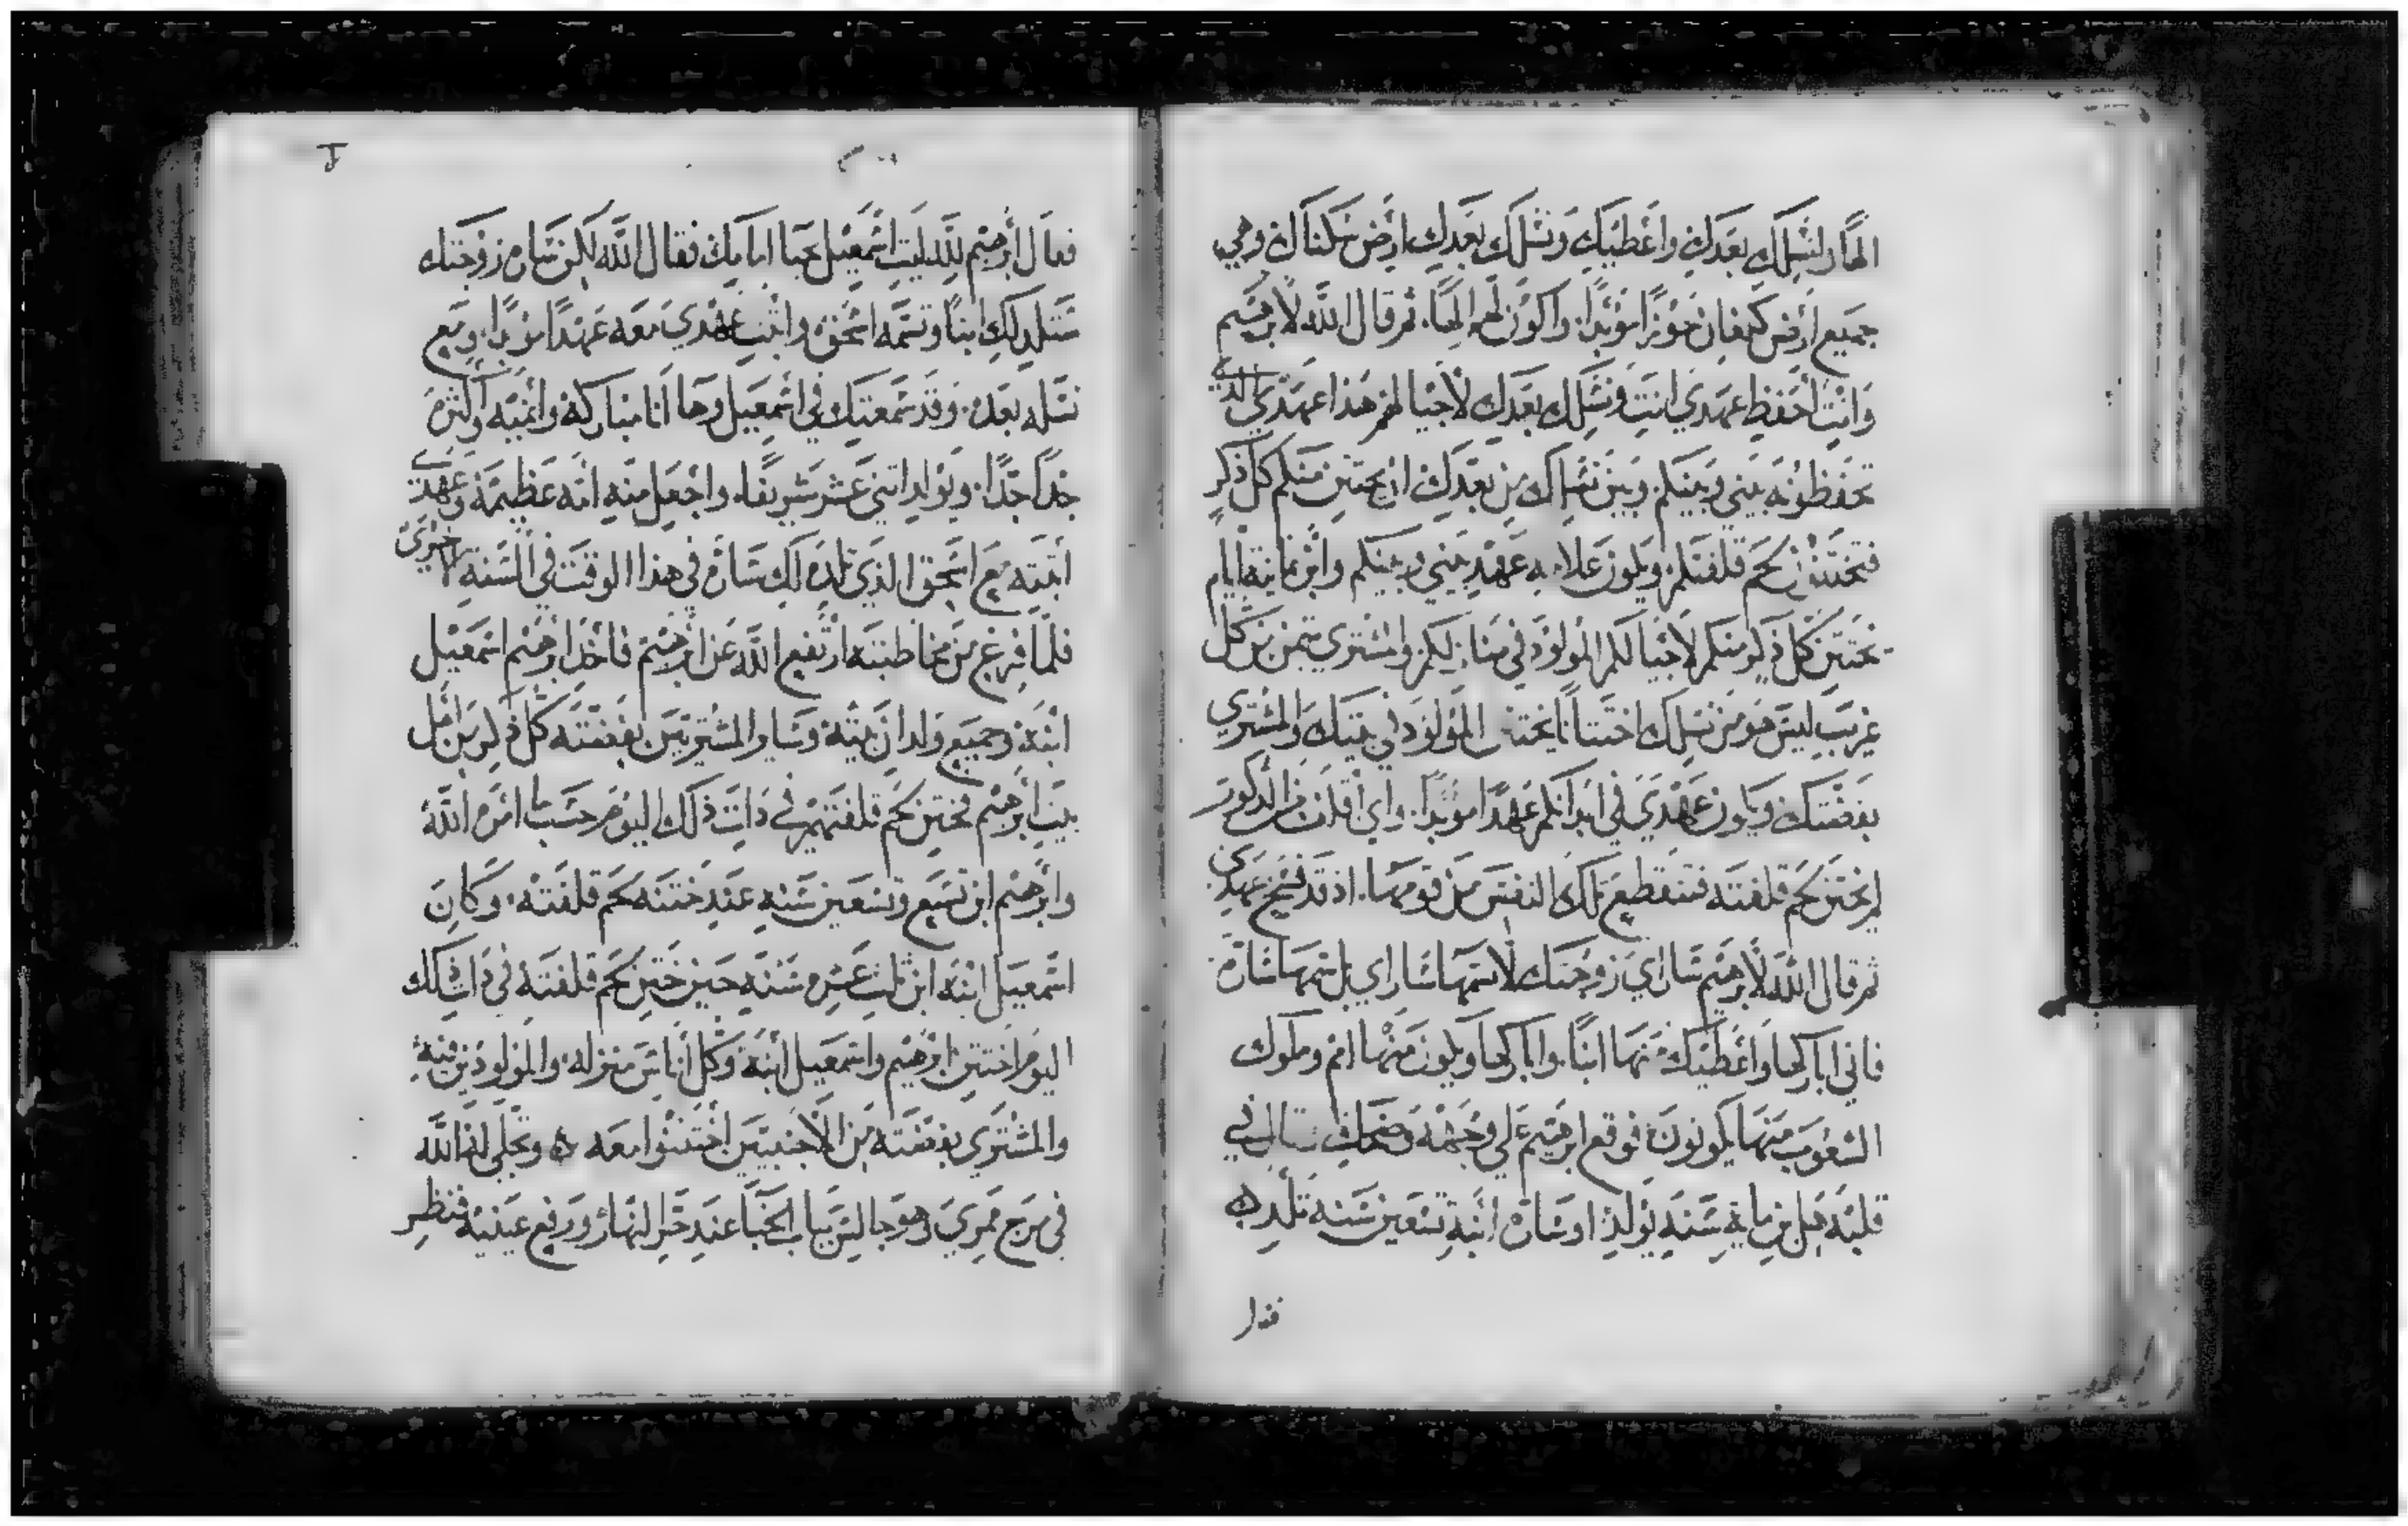 الهًا ولنسلك بعدك واعطيك ونسلك بعدك ارض سكناك وهي
جميع ارض كنعان حوزًا مؤبدًا. واكون لهم الهًا. ثم قال الله لابرهيم
وانت احفظ عهدي انت ونسلك بعدك لاجيالهم هذا عهدي الذي
تحفظونه بيني وبينكم وبين نسلك من بعدك ان يختتن منكم كل ذكر
فتختنون لحم قلفتكم ويكون علامه عهد بيني وبينكم وابن ثمانية ايام
يختتن كل ذكر منكم لاجيالكم المولود في منازلكم والمشتري بثمن من كل
غريب ليس هو من نسلك اختتانا يختتن المولود في بيتك والمشتري
بفضتك ويكون عهدي في ابدانكم عهدًا مؤبدًا. واي اقلف من الذكور
لم يختتن لحم قلفته فتنقطع تلك النفس من قومها. اذ قد فسخ عهدي
ثم قال الله لابرهيم ساراي زوجتك لا تسمها ساراي بل سمها ساره
فاني اباركها واعطيك منها ابنًا. واباركها ويكون منها امم وملوك
الشعوب منها يكونون فوقع ابرهيم علي وجهه وضحك قال في
قلبه هل من ماية سنه يولد او ساره ابنة تسعين سنة تلد
فقال
فقال ابرهيم لله ليت اسمعيل يحيا امامك فقال الله لكن ساره زوجتك
ستلد لك ابنًا وتسمه اسحق واثبت عهدي معه عهدًا مؤبدًا. ومع
نسله بعده. وقد سمعتك في اسمعيل وها انا مباركه وانميه واكثره
جدًا جدًا. ويولد اثني عشر شريفا. واجعل منه امه عظيمة وعهدي
اثبته مع اسحق الذي تلده لك ساره في هذا الوقت في السنه الاخري
فلما فرغ من مخاطبته ارتفع الله عن ابرهيم فاخذ ابرهيم اسمعيل
ابنه وجميع ولدان بيته وساير المشتريين بفضته كل ذكر من اهل
بيت ابرهيم فختن لحم قلفتهم في ذات ذلك اليوم حسب ما امره الله
وابرهيم ابن تسع وتسعين سنه عند ختنه لحم قلفته. وكان
اسمعيل ابنه ابن ثلث عشره سنه حين ختن لحم قلفته في ذات ذلك
اليوم اختتن ابرهيم واسمعيل ابنه وكل اناس منزله. والمولودين منه
والمشتري بفضته من الاجنبيين اختتنوا معه ه وتجلي له الله
في مرج ممري وهو جالس بباب الخبا عند حر النهار ورفع عينيه فنظر